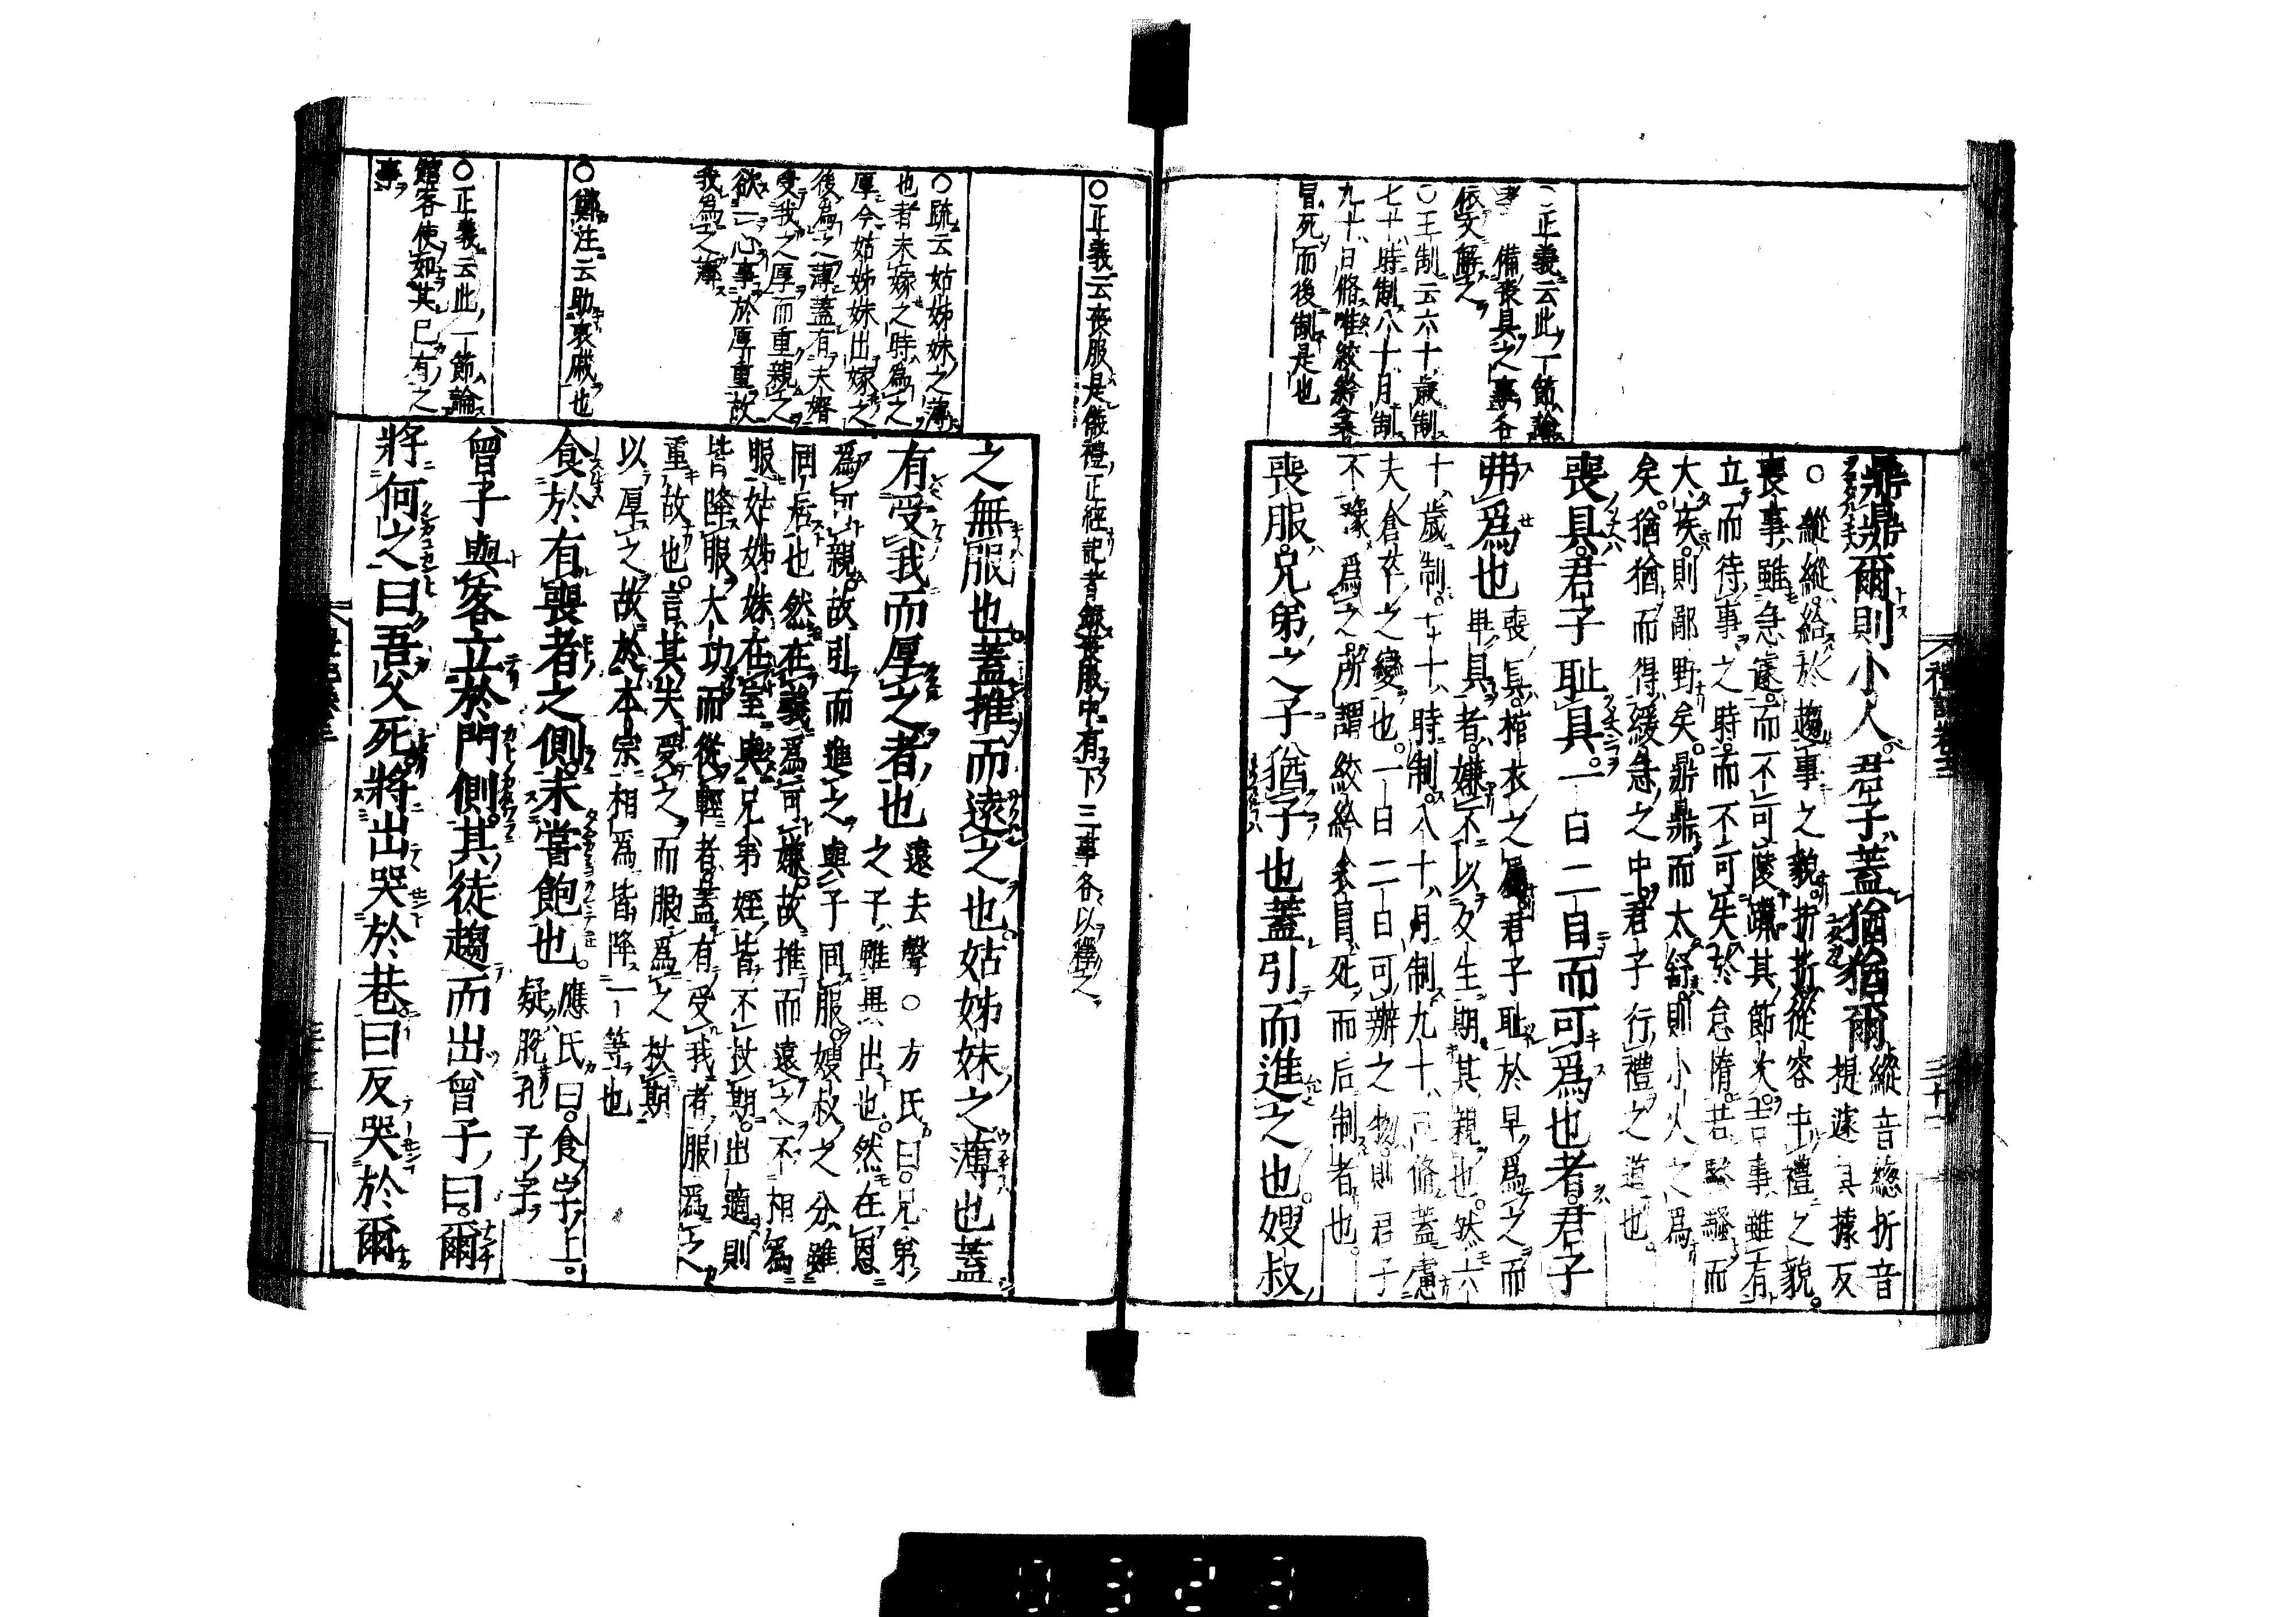 禮記卷三
三十二
鼎鼎爾則小人君子蓋猶猶爾
縱音總折音
提遽其據反
○縱縱給於趨事之貌折折從容中禮之貌
喪事雖急遽而不可陵躐其節次吉事雖有
立而待事之時而不可失於怠惰若騷騷而
大疾則鄙野矣鼎鼎而太舒則小人之爲
矣猶猶而得緩急之中君子行禮之道也
喪具君子耻具一日二日而可爲也者君子
弗爲也
喪具棺衣之屬君子耻於早爲之而
畢具者嫌不以久生期其親也然六
十歲制七十時制八十月制九十日脩蓋慮
夫倉卒之變也一日二日可辦之物則君子
不豫爲之所謂絞紟衾冒死而后制者也
喪服兄弟之子猶子也蓋引而進之也嫂叔
○正義云此一節論
備喪具之事各
依文解之
○王制云六十歲制
七十時制八十月制
九十日脩唯絞紟衾
冒死而後制是也
○正義云喪服是儀禮正經記者錄喪服中有下三事各以釋之
之無服也蓋推而遠之也姑姊妹之薄也蓋
有受我而厚之者也
遠去聲○方氏曰兄弟
之子雖異出也然在恩
爲可親故引而進之與子同服嫂叔之分雖
同居也然在義爲可嫌故推而遠之不相爲
服姑姊妹在室與兄弟姪皆不杖期出適則
皆降服大功而從輕者蓋有受我者服爲之
重故也言其夫受之而服爲之杖期
以厚之故於本宗相爲皆降一等也
食於有喪者之側未嘗飽也
應氏曰食字上
疑脫孔子字
曾子與客立於門側其徒趨而出曾子曰爾
將何之曰吾父死將出哭於巷曰反哭於爾
○疏云姑姊妹之薄
也者未嫁之時爲之
厚今姑姊妹出嫁之
後爲之薄蓋有夫壻
受我之厚而重親之
欲一心事於厚重故
我爲之薄
○鄭注云助哀戚也
○正義云此一節論
館客使如其已有之
事
0323